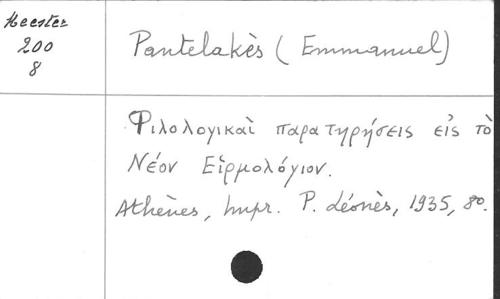 Meester
200
8
Pantelakès (Emmanuel)
Φιλολογικαὶ παρατηρήσεις εἰς τὸ
Νέον Εἱρμολόγιον.
Athènes, Impr. P. Léonès, 1935, 8o.